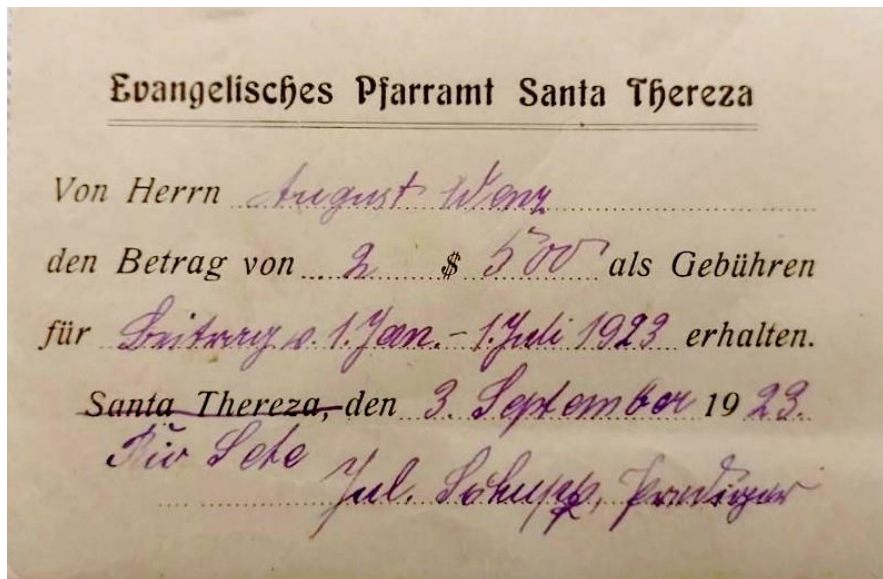 Evangelisches Pfarramt Santa Thereza
Von Herrn August Wenz
den Betrag von 2 $ 500 als Gebühren
für Beitrag v. 1. Jan. - 1. Juli 1923 erhalten.
Santa Thereza, den 3. September 1923.
Rio Sete
Jul. Schupp, Prediger